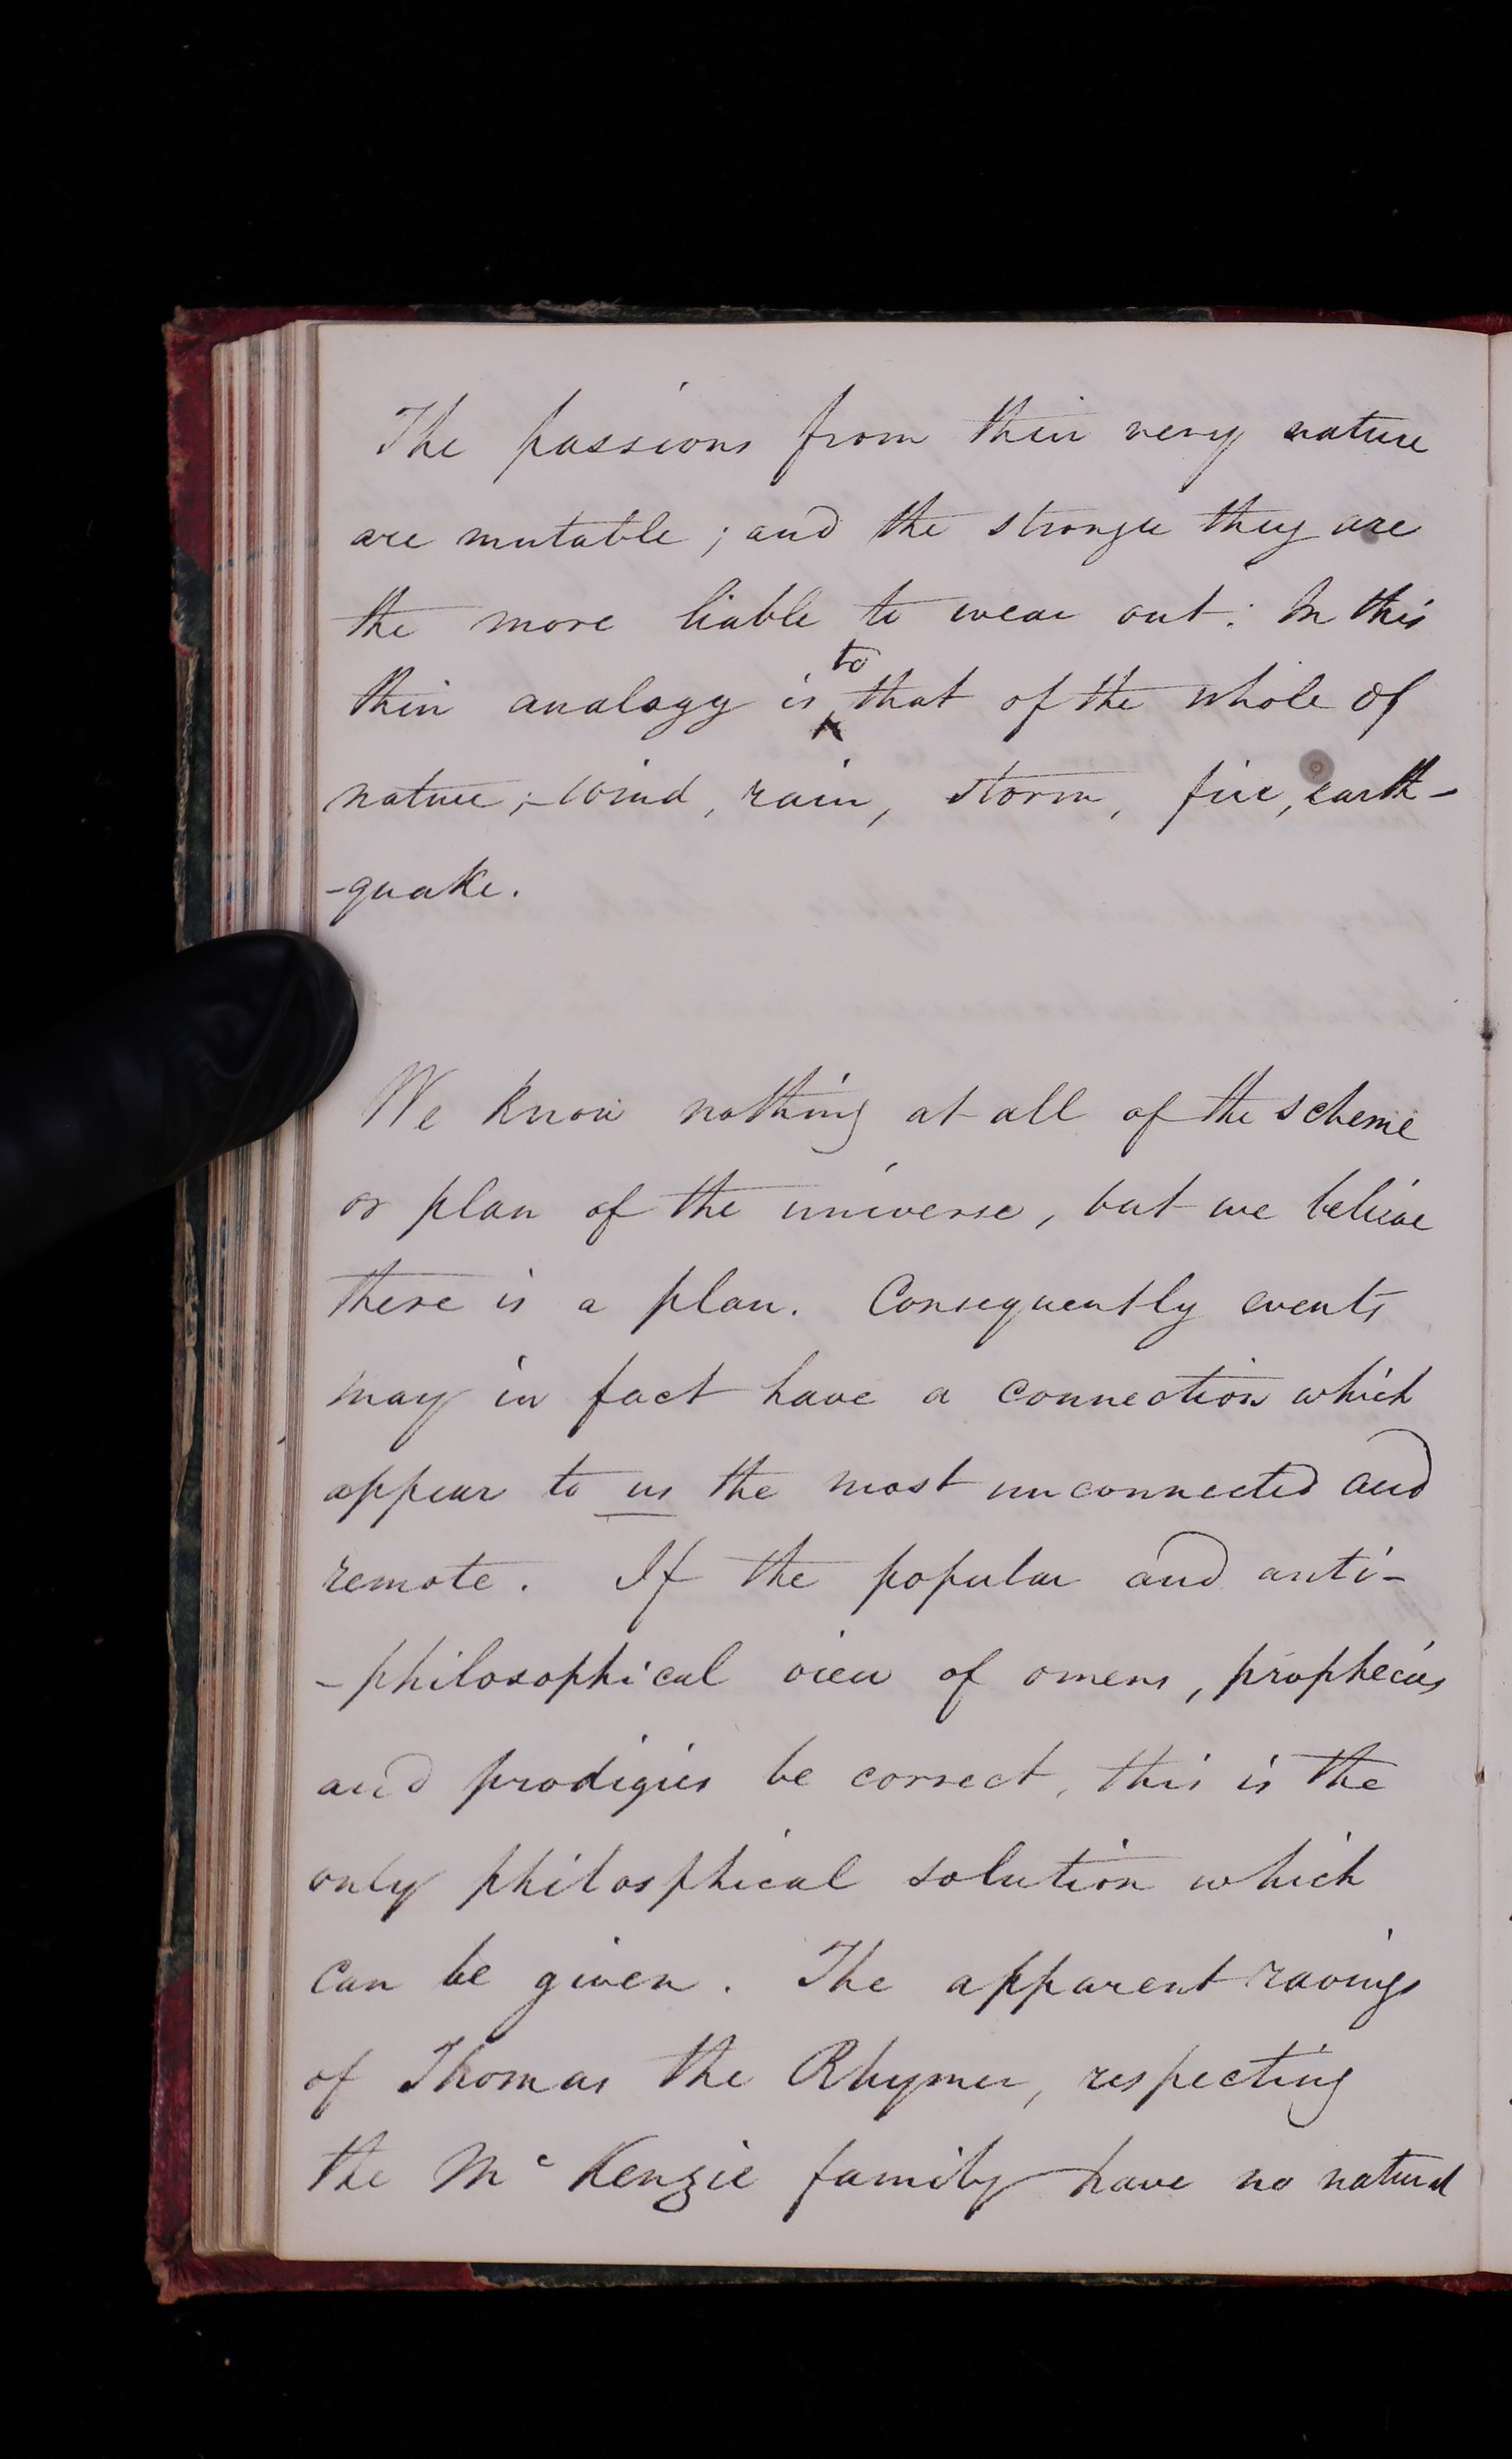 The passions from their very nature
are mutable; and the stronger they are
the more liable to wear out: In this
their analogy is to that of the whole of
nature;- wind, rain, storm, fire, earth-
-quake.
We know nothing at all of the scheme
or plan of the universe, but we believe
there is a plan. Consequently events
may in fact have a connection which
appear to us the most unconnected and
remote. If the popular and anti-
-philosophical view of omens, prophecies
and prodigies be correct, this is the
only philosphical solution which
can be given. The apparent ravings
of Thomas the Rhymer, respecting
the Mc Kenzie family have no natural